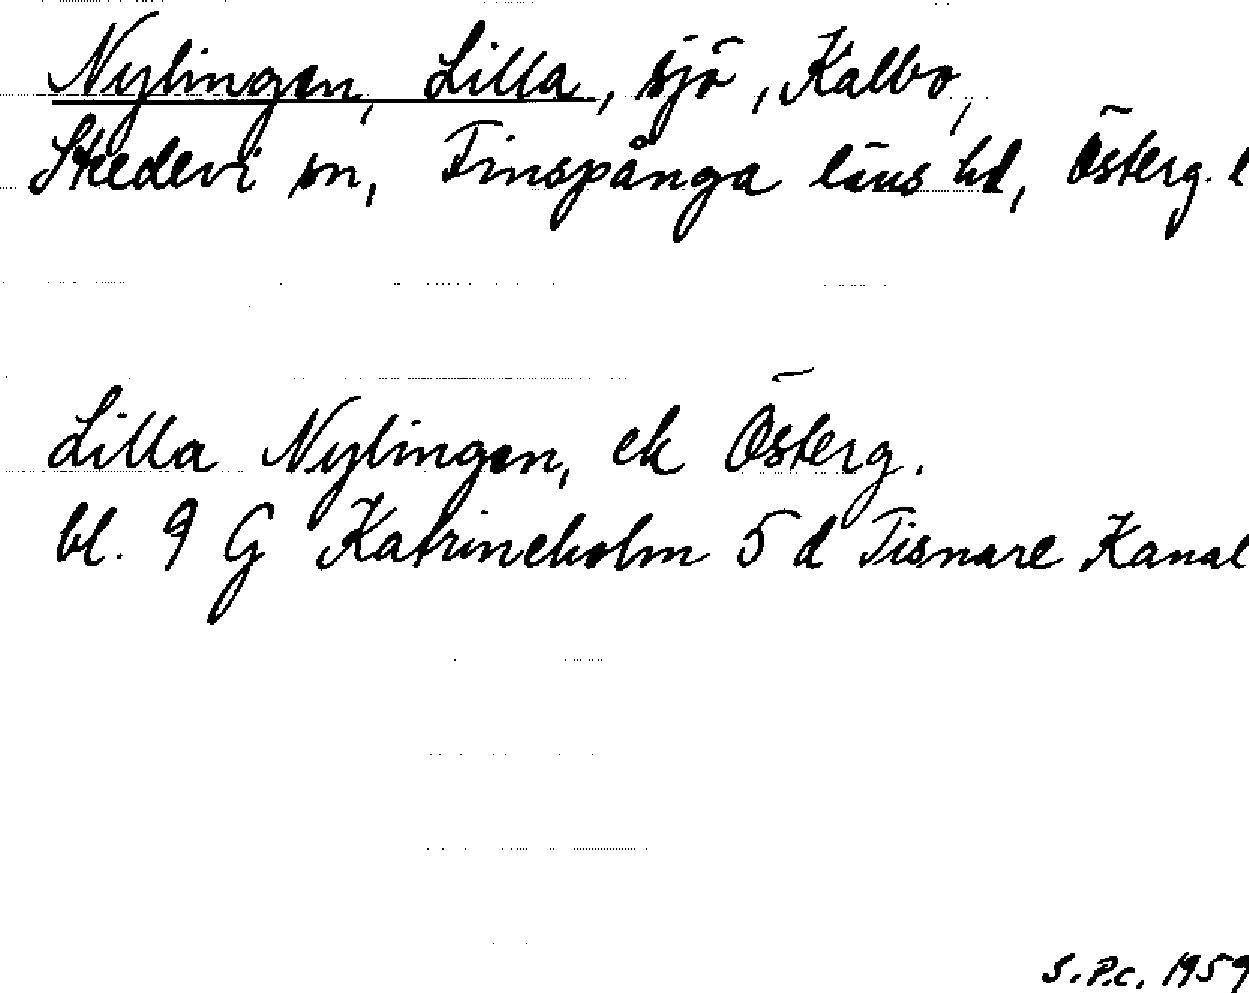 Nylingen, Lilla, sjö, Kalbo,
Skedevi sn, Finspånga läns hd, Österg. l
Lilla Nylingen, ek Österg.
bl. 9 G Katrineholm 5 d Tisnare Kanal
S.P.c. 1959